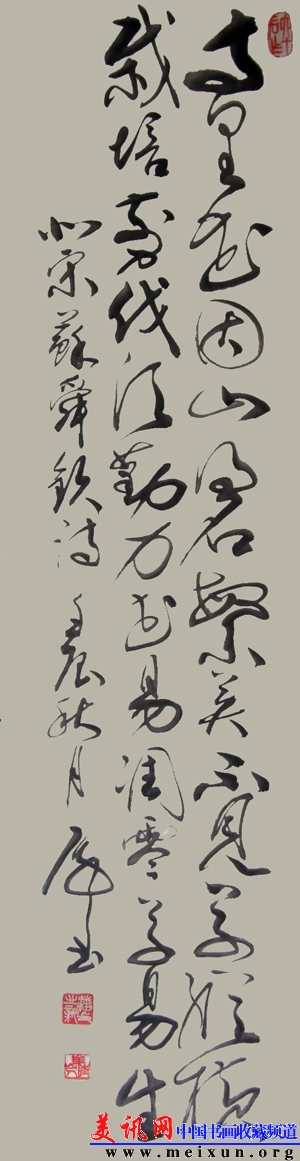 寺里花因山得名繁英不見草縱橫
栽培剪伐須勤力花易凋零草易生
北宋蘇舜欽詩 壬辰秋月 书
美讯网 中国书画收藏频道
www.meixun.org